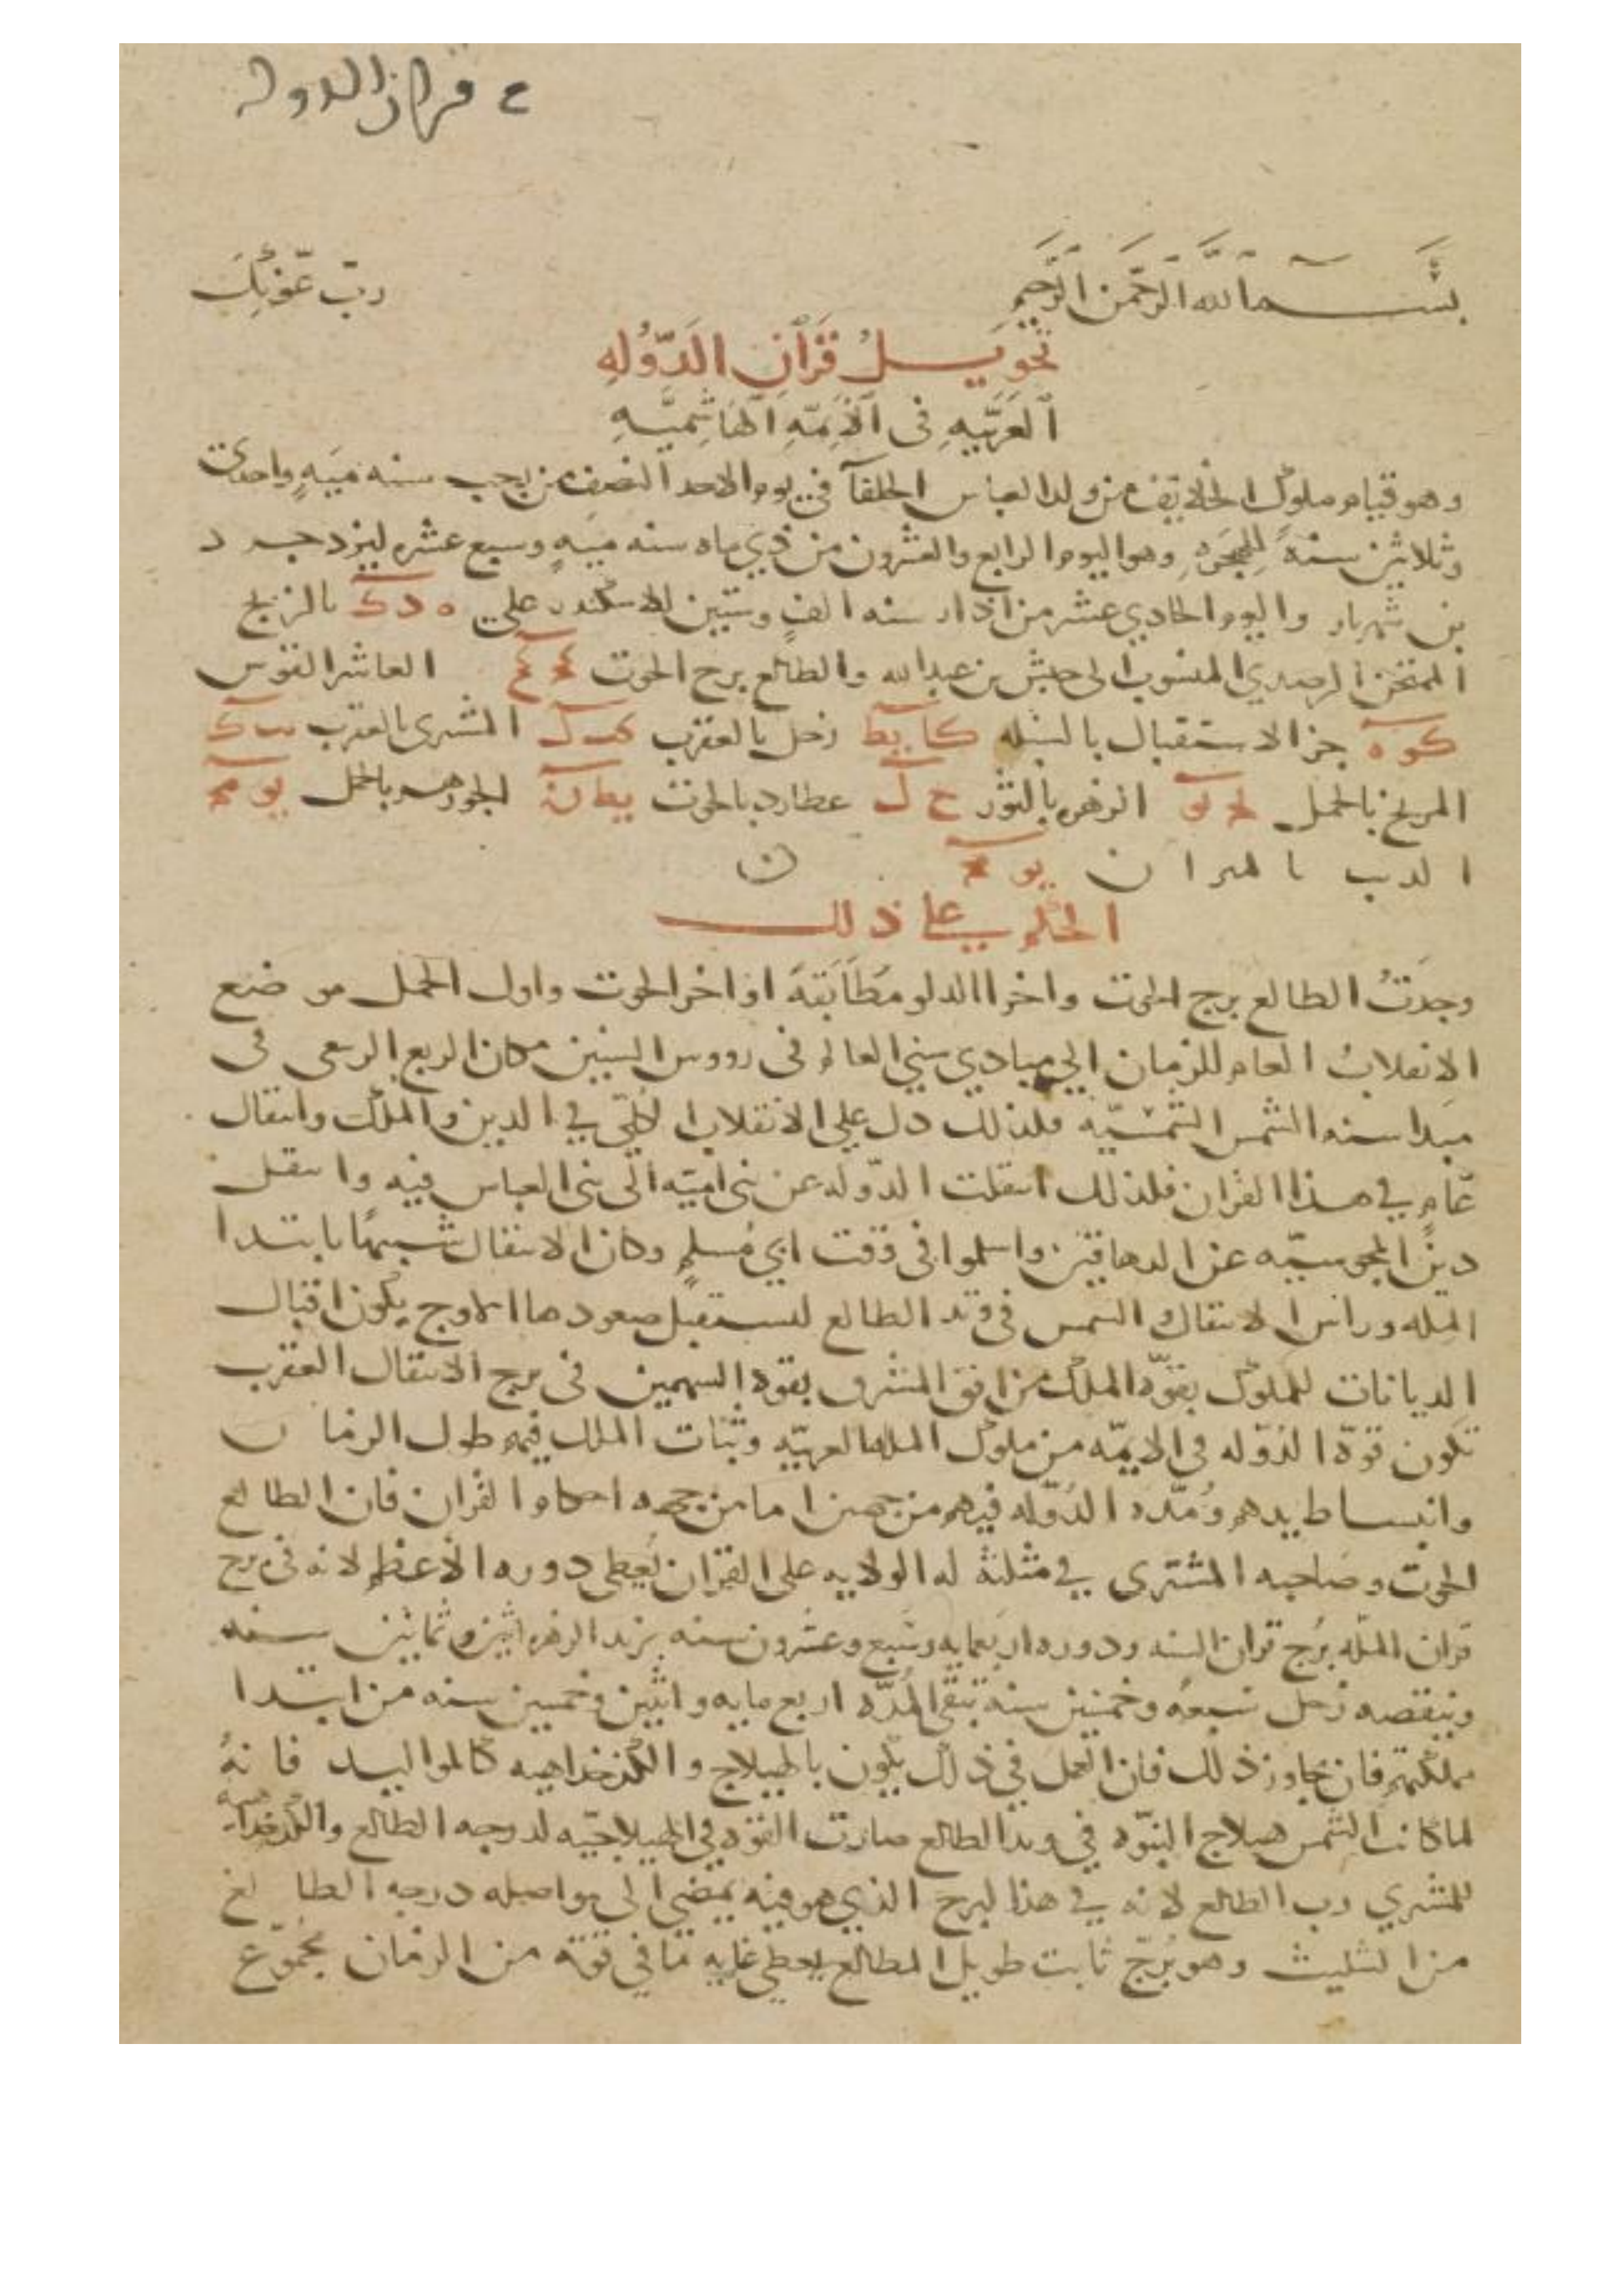 قران الدوله
بسم الله الرحمن الرحيم رب عونك
تحويل قران الدوله
العربيه فى الايمه الهاشميه
وهو قيام ملوك الخلايف من ولد العباس الخلفا في يوم الاحد النصف من رجب سنه ميه واحدى
وثلاثين سنة للهجره وهو اليوم الرابع والعشرون من دي ماه سنه ميه وسبع عشره ليزدجرد
بن شهريار واليوم الحادي عشر من اذار سنه الف وستين للاسكندر علي ه د ك بالزيج
الممتحن الرصدي المنسوب الى حبش بن عبد الله والطالع برج الحوت العاشر القوس
كو ه جز الاستقبال بالسنبله كا يط زحل بالعقرب المشترى بالعقرب
المريخ بالحمل الزهره بالثور ح ل عطارد بالحوت الجوزهر بالحمل يو
الذنب بالميزان يو
الحكم على ذلك
وجدت الطالع برج الحوت واخر الدلو مطابقة اواخر الحوت واول الحمل موضع
الانقلاب العام للزمان الي مبادي سني العالم فى رووس السنين مكان الربع الربيعى فى
مبدا سنه الشمس الشمسيه فلذلك دل علي الانقلاب الكلي في الدين والملك وانتقال
عام في هذا القران فلذلك انتقلت الدوله عن بنى اميه الى بنى العباس فيه وانتقل
دين المجوسيه عن الدهاقين واسلموا فى وقت ابي مسلم وكان الانتقال شبيها بابتدا
المله وراس الانتقال الشمس فى وتد الطالع لتستقبل صعودها الاوج يكون اقبال
الديانات للملوك بقوة الملك من افق المشرق بقوه السهمين فى برج الانتقال العقرب
تكون قوة الدوله فى الايمه من ملوك المله العربيه وثبات الملك فيهم طول الزمان
وانبساط يدهم ومده الدوله فيهم من جهتين اما من جهه احكام القران فان الطالع
الحوت وصاحبه المشترى في مثلثة له الولايه على القران يعطى دوره الاعظم لانه فى برج
قران المله برج قران السنه ودوره اربعمايه وسبع وعشرون سنه يزيد الزهره اثنين وثمانين سنه
وينقصه زحل سبعه وخمسين سنة تبقى المده اربع مايه واثنين وخمسين سنه من ابتدا
مملكتهم فان تجاوز ذلك فان العمل في ذلك يكون بالهيلاج والكدخداهيه كالمواليد فانه
لما كانت الشمس هيلاج النبوه في وتد الطالع صارت القوه في الهيلاجيه لدرجه الطالع والكدخداهيه
للمشتري رب الطالع لانه في هذا البرج الذي هو فيه يمضي الى مواصله درجه الطالع
من التثليث وهو برج ثابت طويل المطالع يعطى غايه ما في قوته من الزمان بمجموع